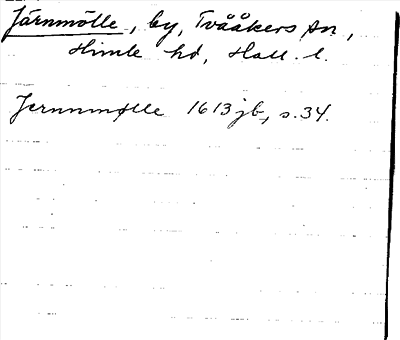 Järnmölle, by, Tvååkers sn,
Himle hd, Hall. l.
Jernnmølle 1613 jb, s. 34.